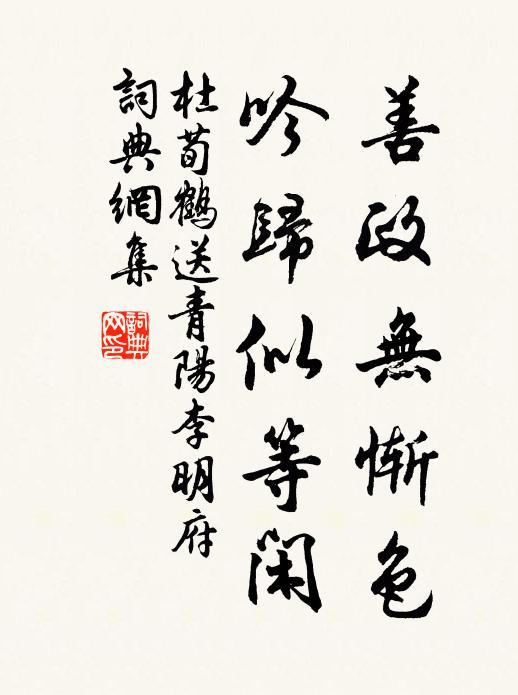 善政無慚色
吟歸似等閑
杜荀鶴送青陽李明府
詞典網集
詞典網印